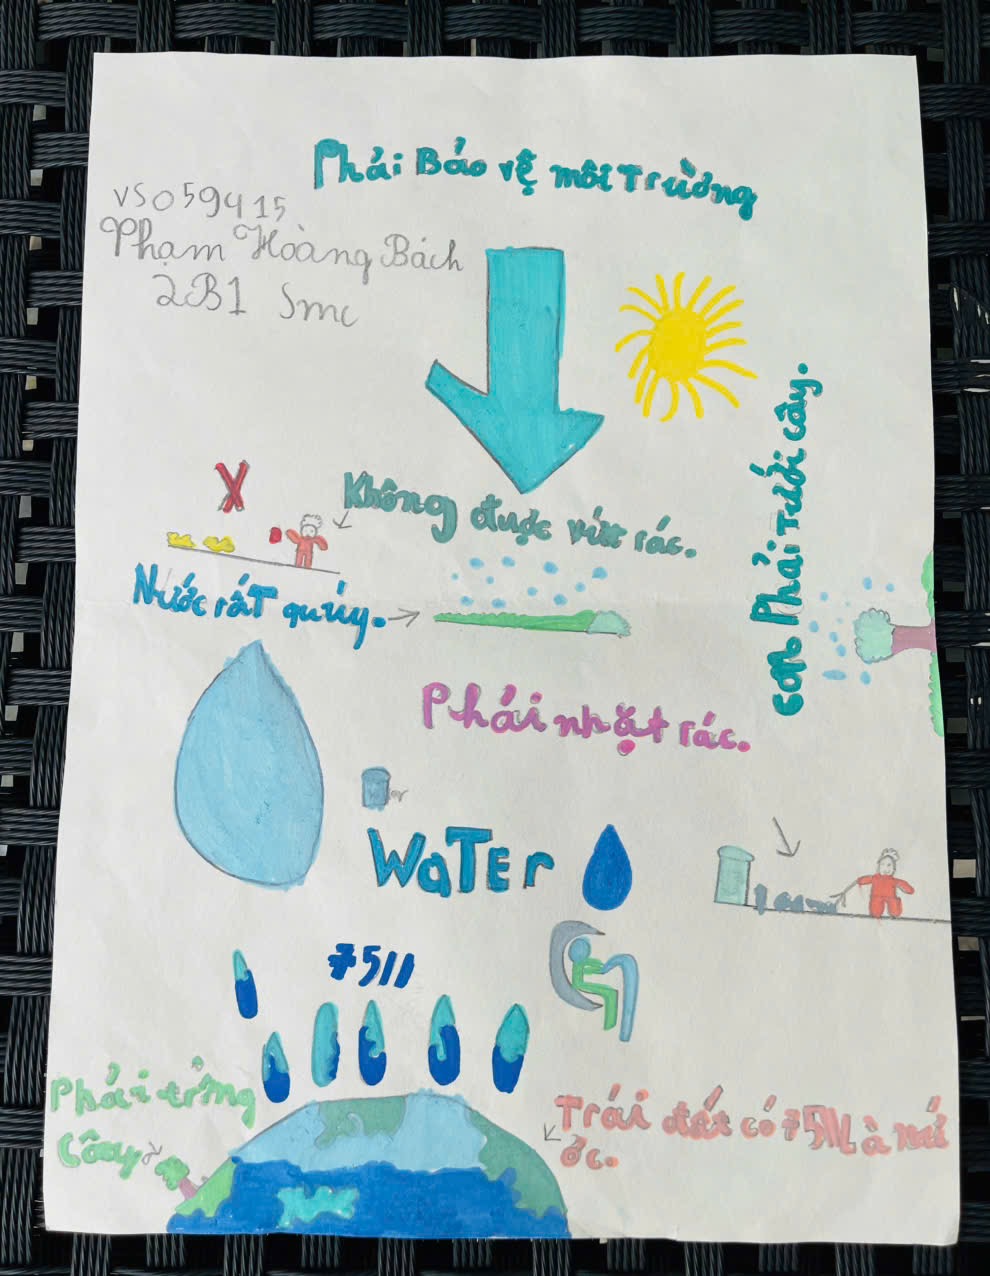 Phải Bảo vệ môi Trường
VS059415
Phạm Hoàng Bách
2B1 Smc
Không được vứt rác.
Nước rất quúy.
con Phải tưới cây.
Phải nhặt rác.
WaTEr
7511
Phải trồng
Cây
Trái đất có 75% Là nướ
ớc.